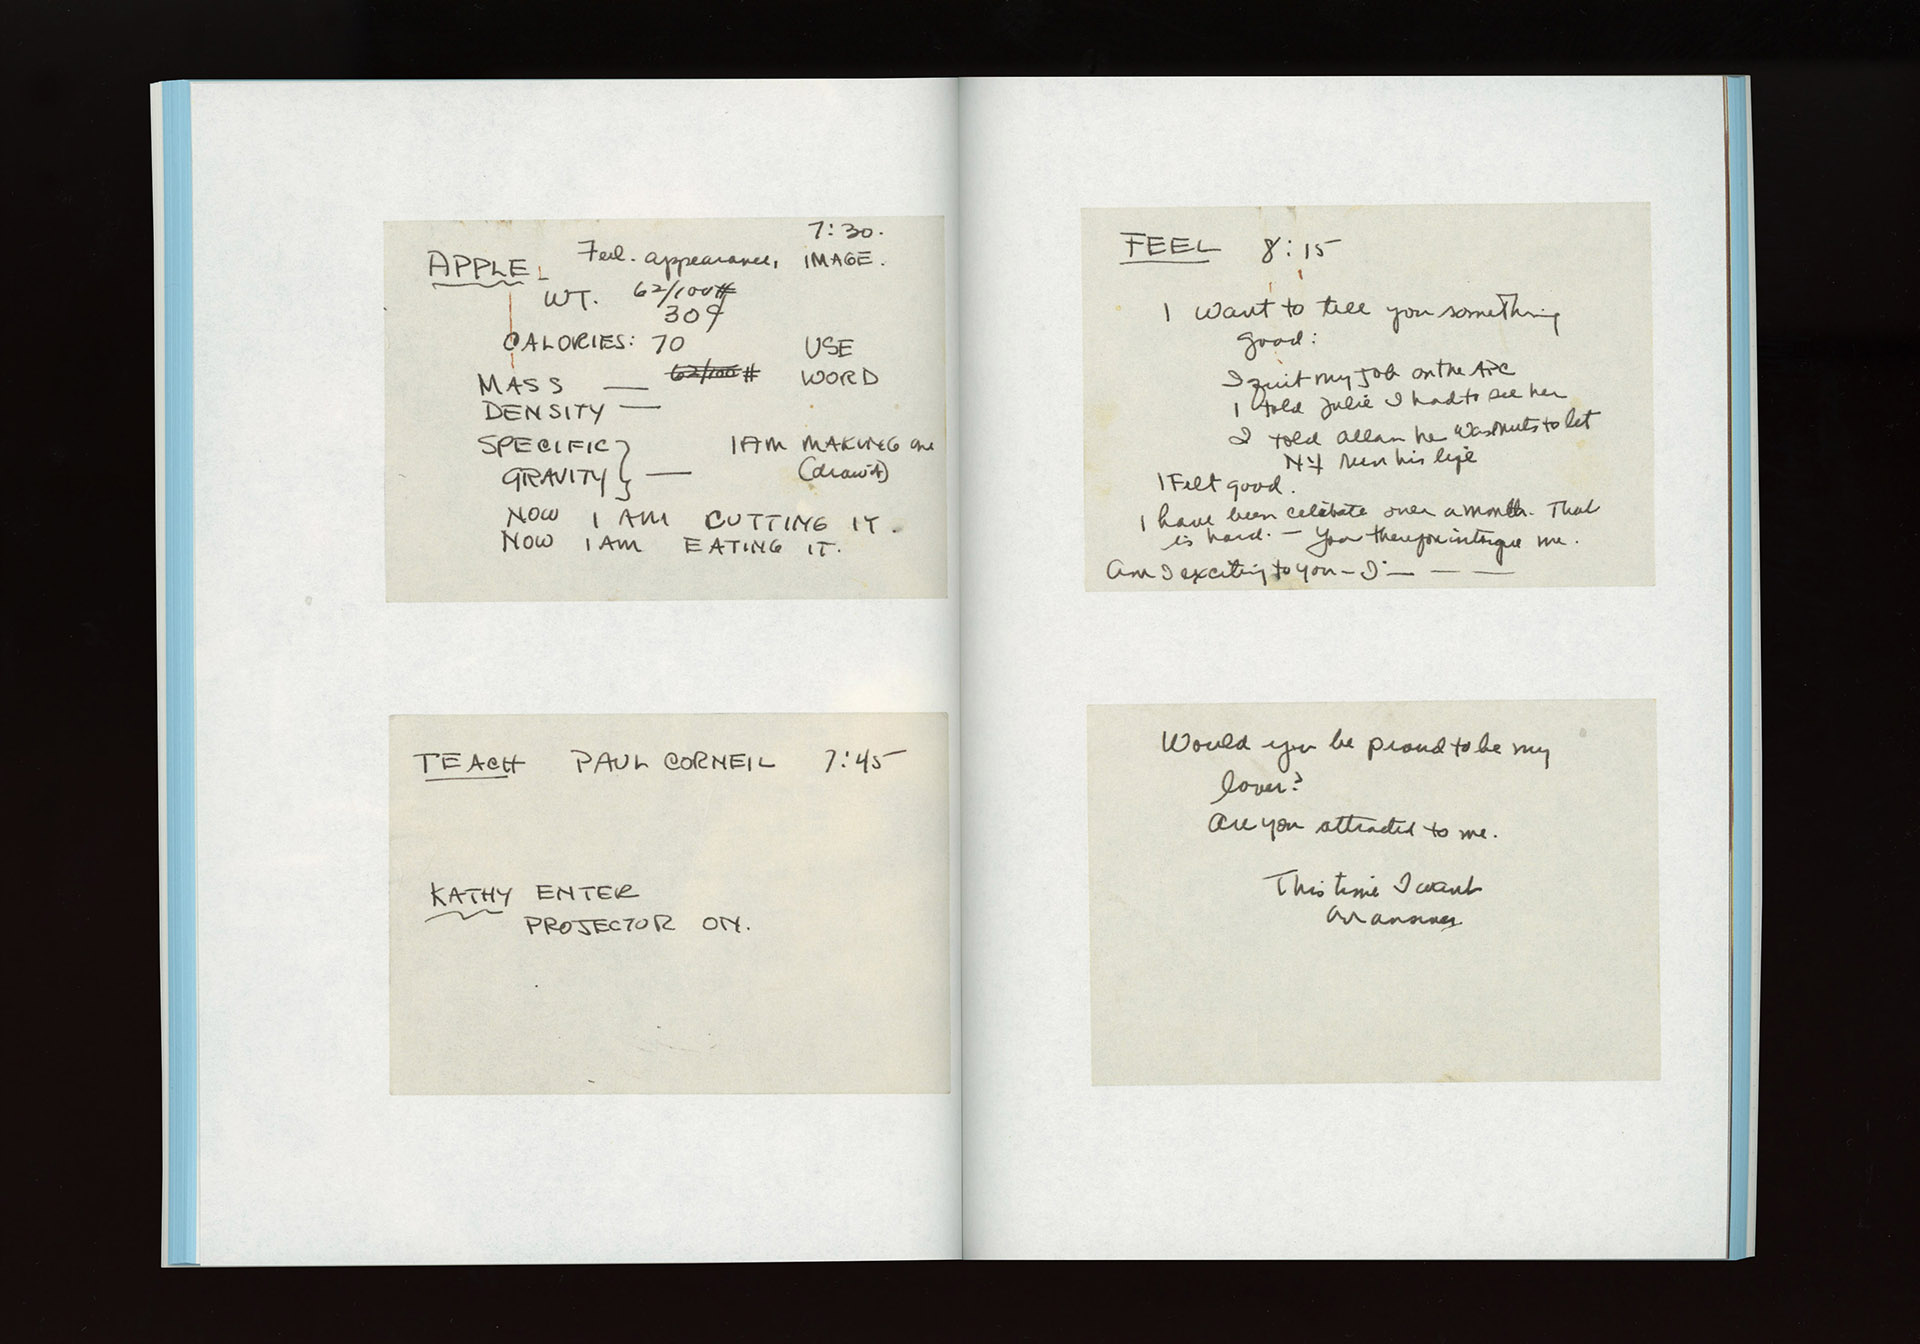 7:30.
APPLE Feel. appearance, IMAGE.
WT. 62/100#
30¢
CALORIES: 70 USE
MASS — 62/100# WORD
DENSITY —
SPECIFIC I AM MAKING one
GRAVITY — (draw it)
NOW I AM CUTTING IT.
NOW I AM EATING IT.
TEACH PAUL CORNEIL 7:45
KATHY ENTER
PROJECTOR ON.
FEEL 8:15
I want to tell you something
good:
I quit my job on the APC
I told Julie I had to see her
I told Allan he was nuts to let
NY run his life
I Felt good.
I have been celebate over a month. That
is hard. — You therefore intrigue me.
Am I exciting to you — I — — —
Would you be proud to be my
lover?
Are you attracted to me.
This time I want
an answer